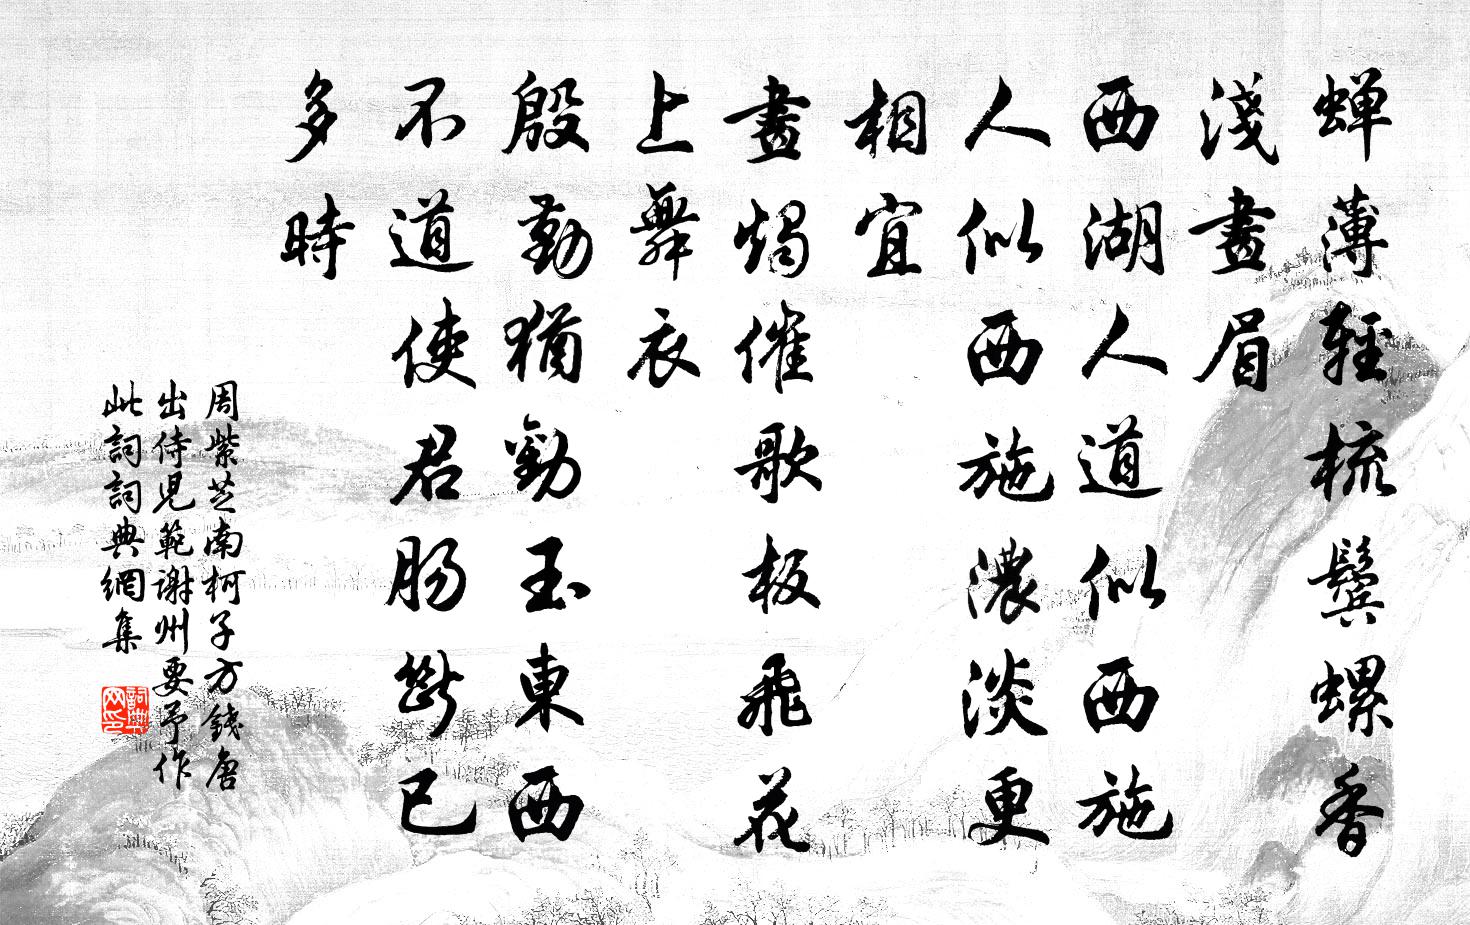 蝉薄輕梳鬓螺香
淺畫眉
西湖人道似西施
人似西施濃淡更
相宜
畫燭催歌板飛花
上舞衣
殷勤猶勸玉東西
不道使君肠斷已
多時
周紫芝南柯子方錢唐
出侍兒範谢州要予作
此詞詞典網集
詞典网印